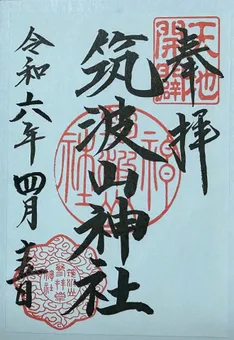 奉拝
天地
開闢
筑波山神社
令和六年四月十五日